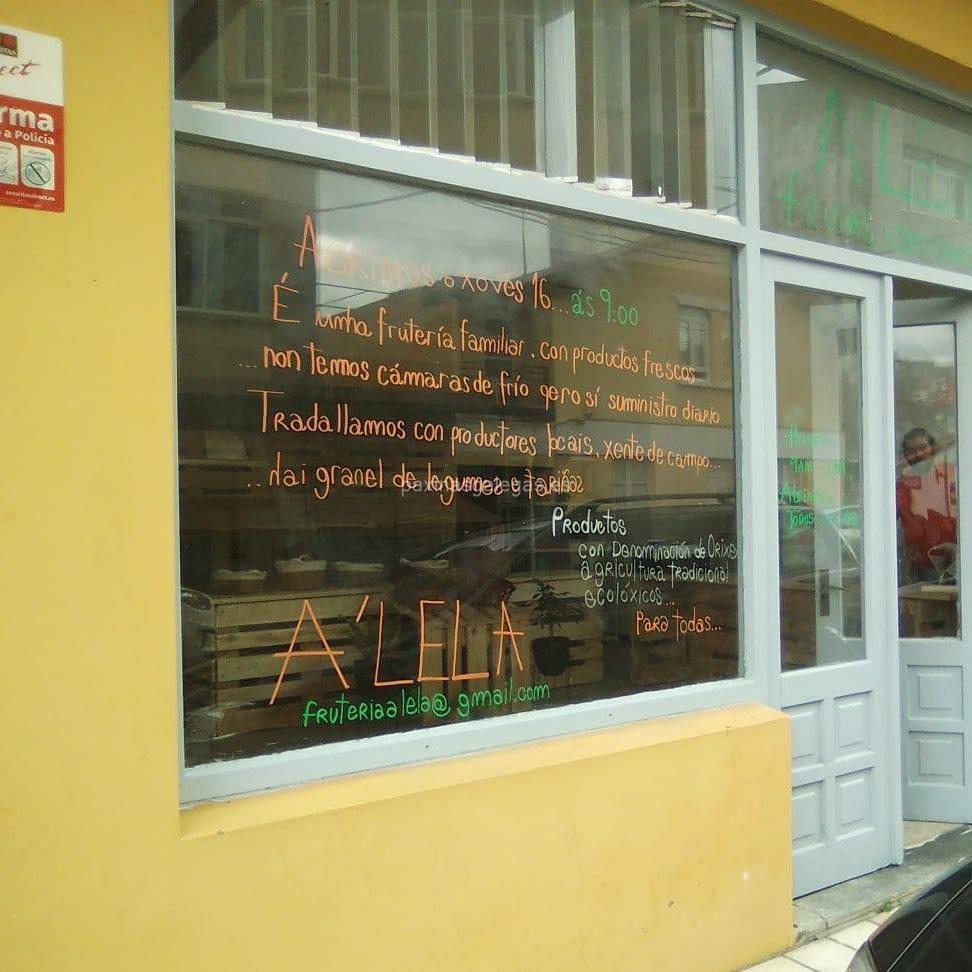 ect
rma
a Policía
securitasdirect.es
Abrimos o xoves 16... ás 9:00
É unha frutería familiar, con productos frescos
...non temos cámaras de frío pero sí suministro diario
Traballamos con productores locais, xente de campo...
..Hai granel de legumes e fariñas
Productos
con Denominación de Orixe
agricultura tradicional
ecolóxicos...
Para todas...
A'LELÁ
fruteriaalela@gmail.com
A'L